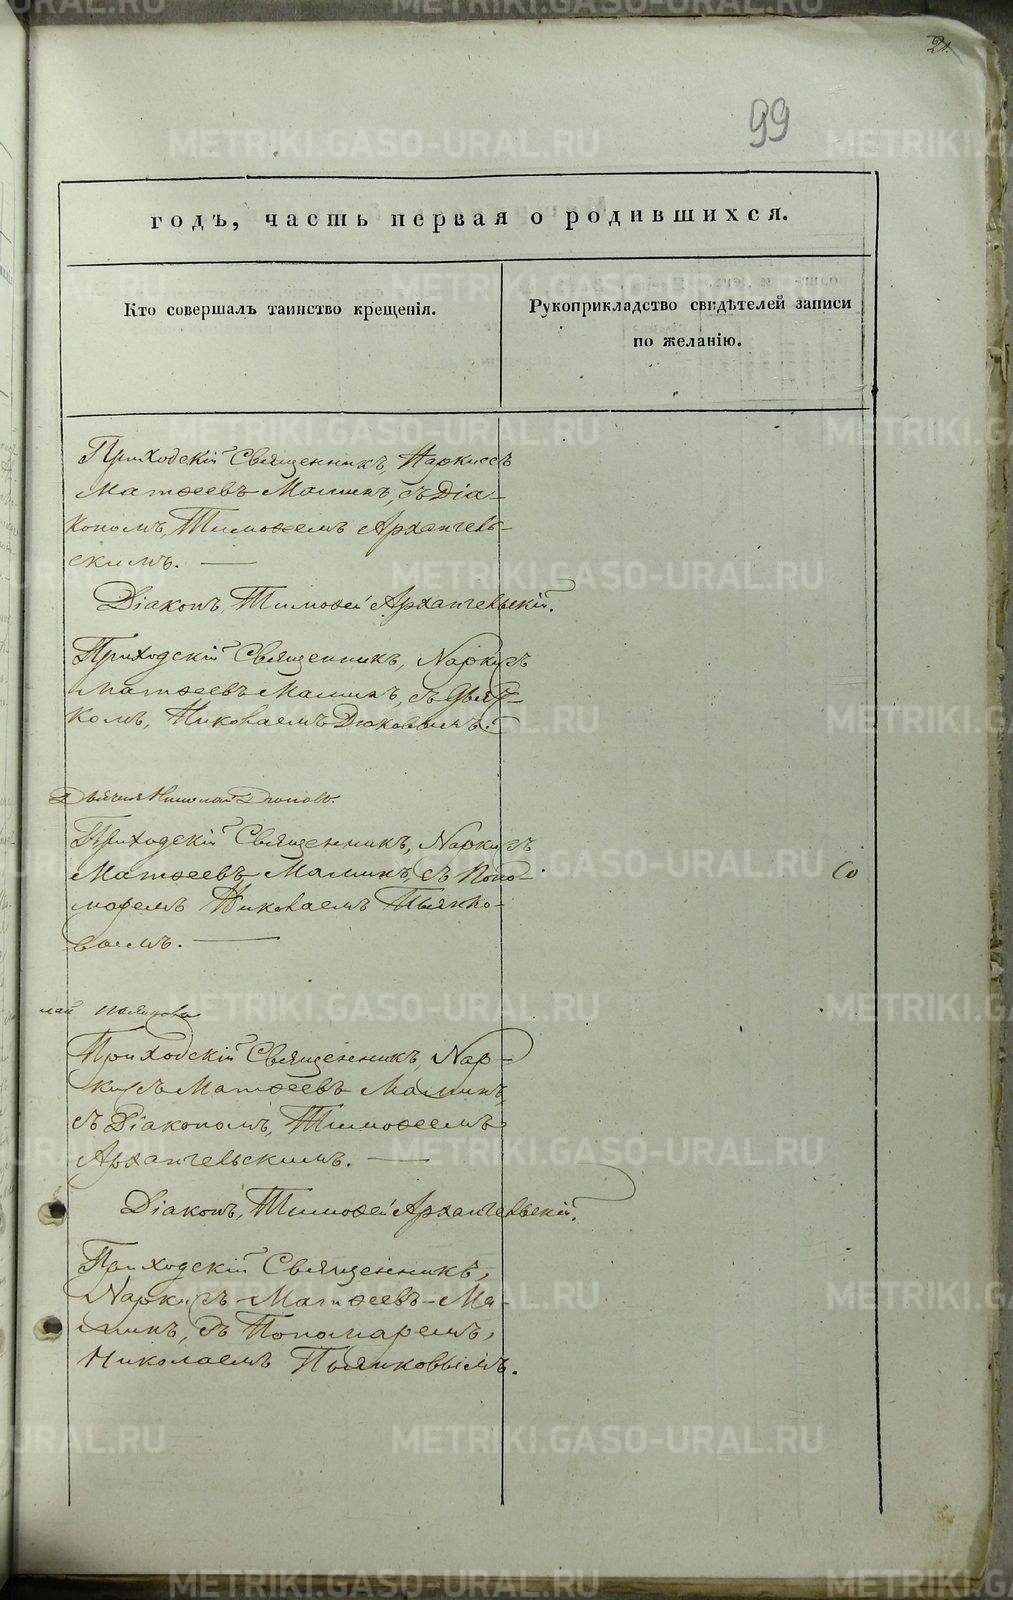 21.
99
годъ, часть первая о родившихся.
Кто совершалъ таинство крещенія.
Рукоприкладство свидѣтелей записи
по желанію.
Приходскій Священникъ, Наркиссъ
Матѳеевъ Маминъ, съ Діа-
кономъ, Тимоѳеемъ Архангель-
скимъ. —
Діаконъ, Тимоѳей Архангельскій.
Приходскій Священникъ, Наркисъ
Матѳеевъ Маминъ, съ Дьяч-
комъ, Николаемъ
Дьячекъ Николай
Приходскій Священникъ, Наркисъ
Матѳеевъ Маминъ, съ Поно-
маремъ Николаемъ Пьянко-
вымъ. —
лай Пьянковъ
Приходскій Священникъ, Нар-
кисъ Матѳеевъ Маминъ,
съ Діакономъ, Тимоѳеемъ
Архангельскимъ. —
Діаконъ, Тимоѳей Архангельскій.
Приходскій Священникъ,
Наркисъ Матѳеевъ Ма-
минъ, съ Пономаремъ,
Николаемъ Пьянковымъ.
METRIKI.GASO-URAL.RU